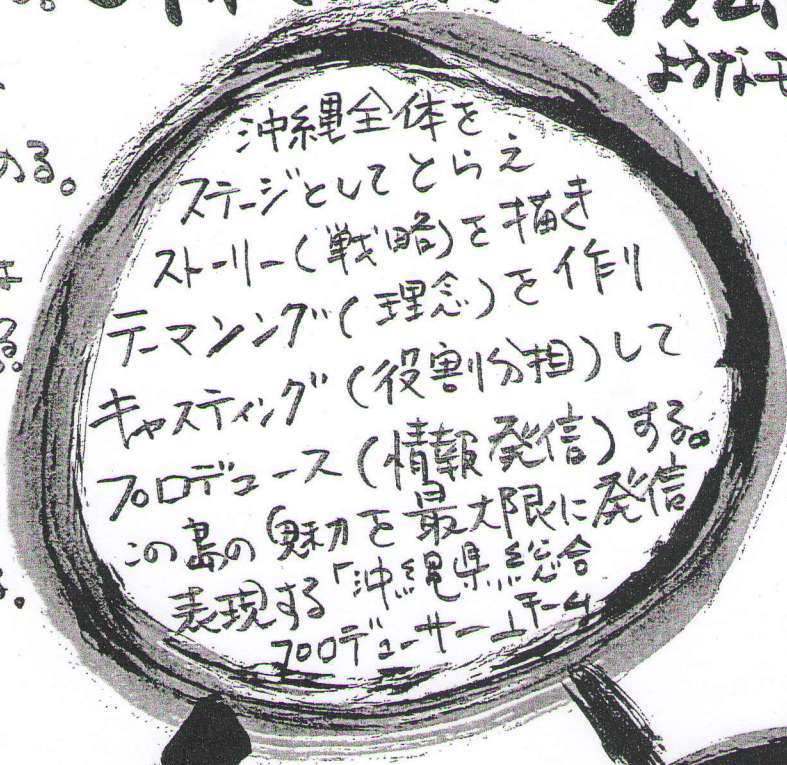 ようなモ
める。
沖縄全体を
ステージとしてとらえ
ストーリー(戦略)を描き
テーマンング(理念)を作り
キャスティング(役割分担)して
プロデュース(情報発信)する。
この島の魅力を最大限に発信
表現する「沖縄県総合
プロデューサー」チーム